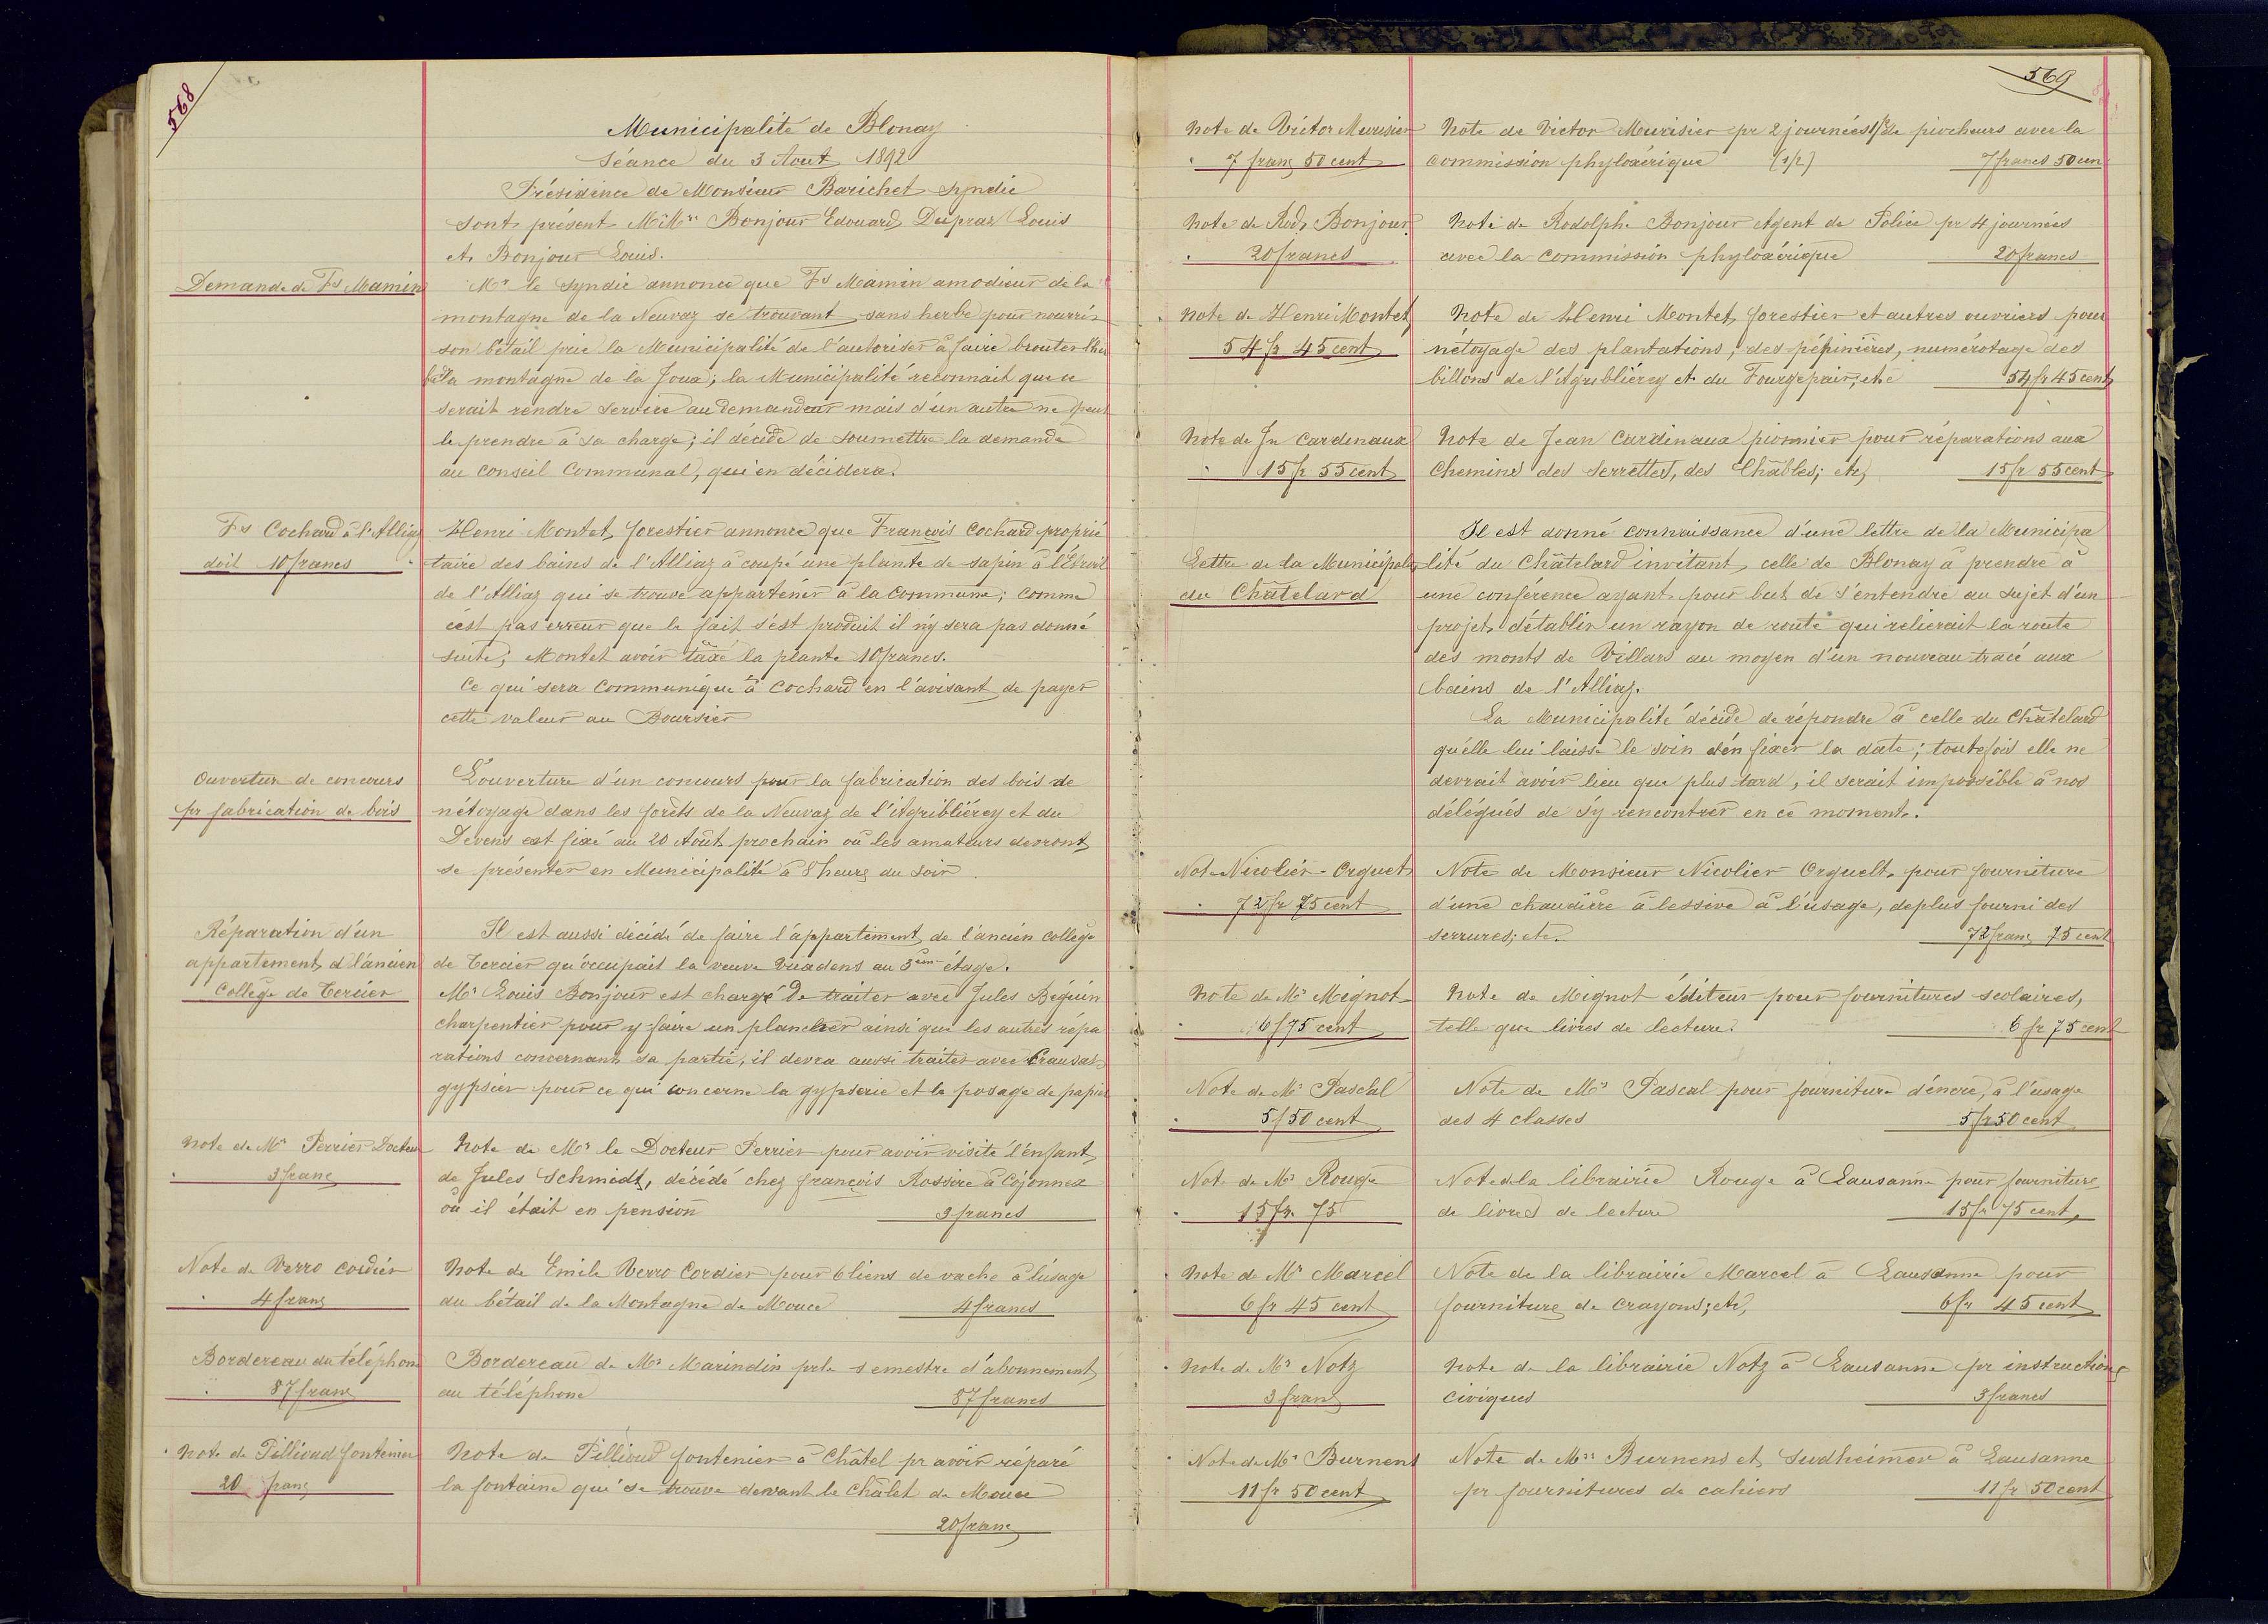 568
Municipalité de Blonay
Séance du 3 Aout 1892
Présidence de Monsieur Barichet Syndic
Sont présent MrMrs Bonjour Edouard, Dupraz Louis
et Bonjour Louis.
Demande de Fs Mamin
Mr le Syndic annonce que Fs Mamin amodieur de la
montagne de la Neuvaz se trouvant sans herbe pour nourrir
son bétail prie la Municipalité de l'autoriser à faire brouter l'her
be la montagne de la Joux; la Municipalité reconnait que ce
serait rendre service au demandeur mais d'un autre ne peut
le prendre à sa charge; il décide de soumettre la demande
au Conseil Communal, qui en décidera.
Fs Cochard à l'Alliaz
doit 10 francs
Henri Montet, forestier annonce que François Cochard proprié
taire des bains de l'Alliaz à coupé une plante de sapin à
de l'Alliaz qui se trouve appartenir à la Commune; comme
c'est pas erreur que le fait s'est produit il n'y sera pas donné
suite; Montet avoir taxé la plante 10 francs.
Ce qui sera Communiqué à Cochard en l'avisant de payer
cette valeur au Boursier
Ouverture de concours
pr fabrication de bois
L'ouverture d'un concours pour la fabrication des bois de
nétoyage dans les forêts de la Neuvaz de l'Agribliérey et du
Devens est fixé au 20 Août prochain où les amateurs devront
se présenter en Municipalité à 8 heurs du soir.
Réparation d'un
appartement d l'ancien
College de Tercier
Il est aussi décidé de faire l'appartement de l'ancien collège
de Tercier qu'occupait la veuve Vuadens au 3ème étage.
Mr Louis Bonjour est chargé de traiter avec Jules Béguin
charpentier pour y faire un plancher ainsi que les autres répa
rations concernant sa partie, il devra aussi traiter avec Crausaz
gypsier pour ce qui concerne la gypserie et le posage de papier
Note de Mr Perrier Docteur
3 franc
Note de Mr le Docteur Perrier pour avoir visité l'enfant
de Jules Schmidt, décédé chez françois Rossire à Cojonnex
où il était en pension 3 francs
Note de Verro cordier
4 franc
Note de Emile Verro Cordier pour 6 liens de vache à l'usage
du bétail de la Montagne de Mouce 4 francs
Bordereau du téléphone
87 franc
Bordereau de Mr Marindin pr le semestre d'abonnement
au téléphone 87 francs
Note de Pillioud fontenier
20 franc
Note de Pillioud fontenier à Châtel pr avoir réparé
la fontaine qui se trouve devant le Châlet de Mouce
20 franc
569
Note de Victor Meurisier
7 franc 50 cent
Note de Victor Meurisier pr 2 journées 1/2 de piocheurs avec la
commission phyloxérique (1/2) 7 francs 50 cen
Note de Rod. Bonjour
20 francs
Note de Rodolphe Bonjour Agent de Police pr 4 journées
avec la Commission phyloxérique 20 francs
Note de Henri Montet
54 fr 45 cent
Note de Henri Montet, forestier et autres ouvriers pour
nétoyage des plantations, des pépinières, numérotage des
billons de l'Agribliérey et du Fourgepair, etc 54 fr 45 cent
Note de Jn Cardenaux
15 fr 55 cent
Note de Jean Cardinaux pionnier pour réparations aux
Chemins des Serrettes, des Châbles; etc, 15 fr 55 cent
Lettre de la Municipale
du Châtelard
Il est donné connaissance d'une lettre de la Municipa
lité du Châtelard invitant celle de Blonay à prendre à
une conférence ayant pour but de s'entendre au sujet d'un
projet, d'établir un rayon de route qui relierait la route
des monts de Villars au moyen d'un nouveau tracé aux
bains de l'Alliaz.
La Municipalité décide de répondre à celle du Châtelard
qu'elle lui laisse le soin d'en fixer la date; toutefois elle ne
devrait avoir lieu que plus tard, il serait impossible à nos
délégués de s'y rencontrer en ce moment.
Note Nicolier-Orguelt
72 fr 75 cent
Note de Monsieur Nicolier Orguelt, pour fourniture
d'une chaudière à lessive à l'usage, deplus fourni des
serrures; etc. 72 franc 75 cent
Note de Mr Mignot
6 f 75 cent
Note de Mignot éditeur pour fournitures scolaires,
telle que livres de lecture. 6 fr 75 cent
Note de Mr Pascal
5 f 50 cent
Note de Mr Pascal pour fourniture d'encre, à l'usage
des 4 classes 5 fr 50 cent
Note de Mr Rouge
15 fr 75
Note de la librairie Rouge à Lausanne pour fourniture
de livres de lecture 15 fr 75 cent
Note de Mr Marcel
6 fr 45 cent
Note de la librairie Marcel à Lausanne pour
fourniture de Crayons; etc, 6 fr 45 cent
Note de Mr Notz
3 franc
Note de la librairie Notz à Lausanne pr instructions
civiques 3 francs
Note de Mr Burnens
11 fr 50 cent
Note de Mrs Burnens et Sudheimer à Lausanne
pr fournitures de cahiers 11 fr 50 cent